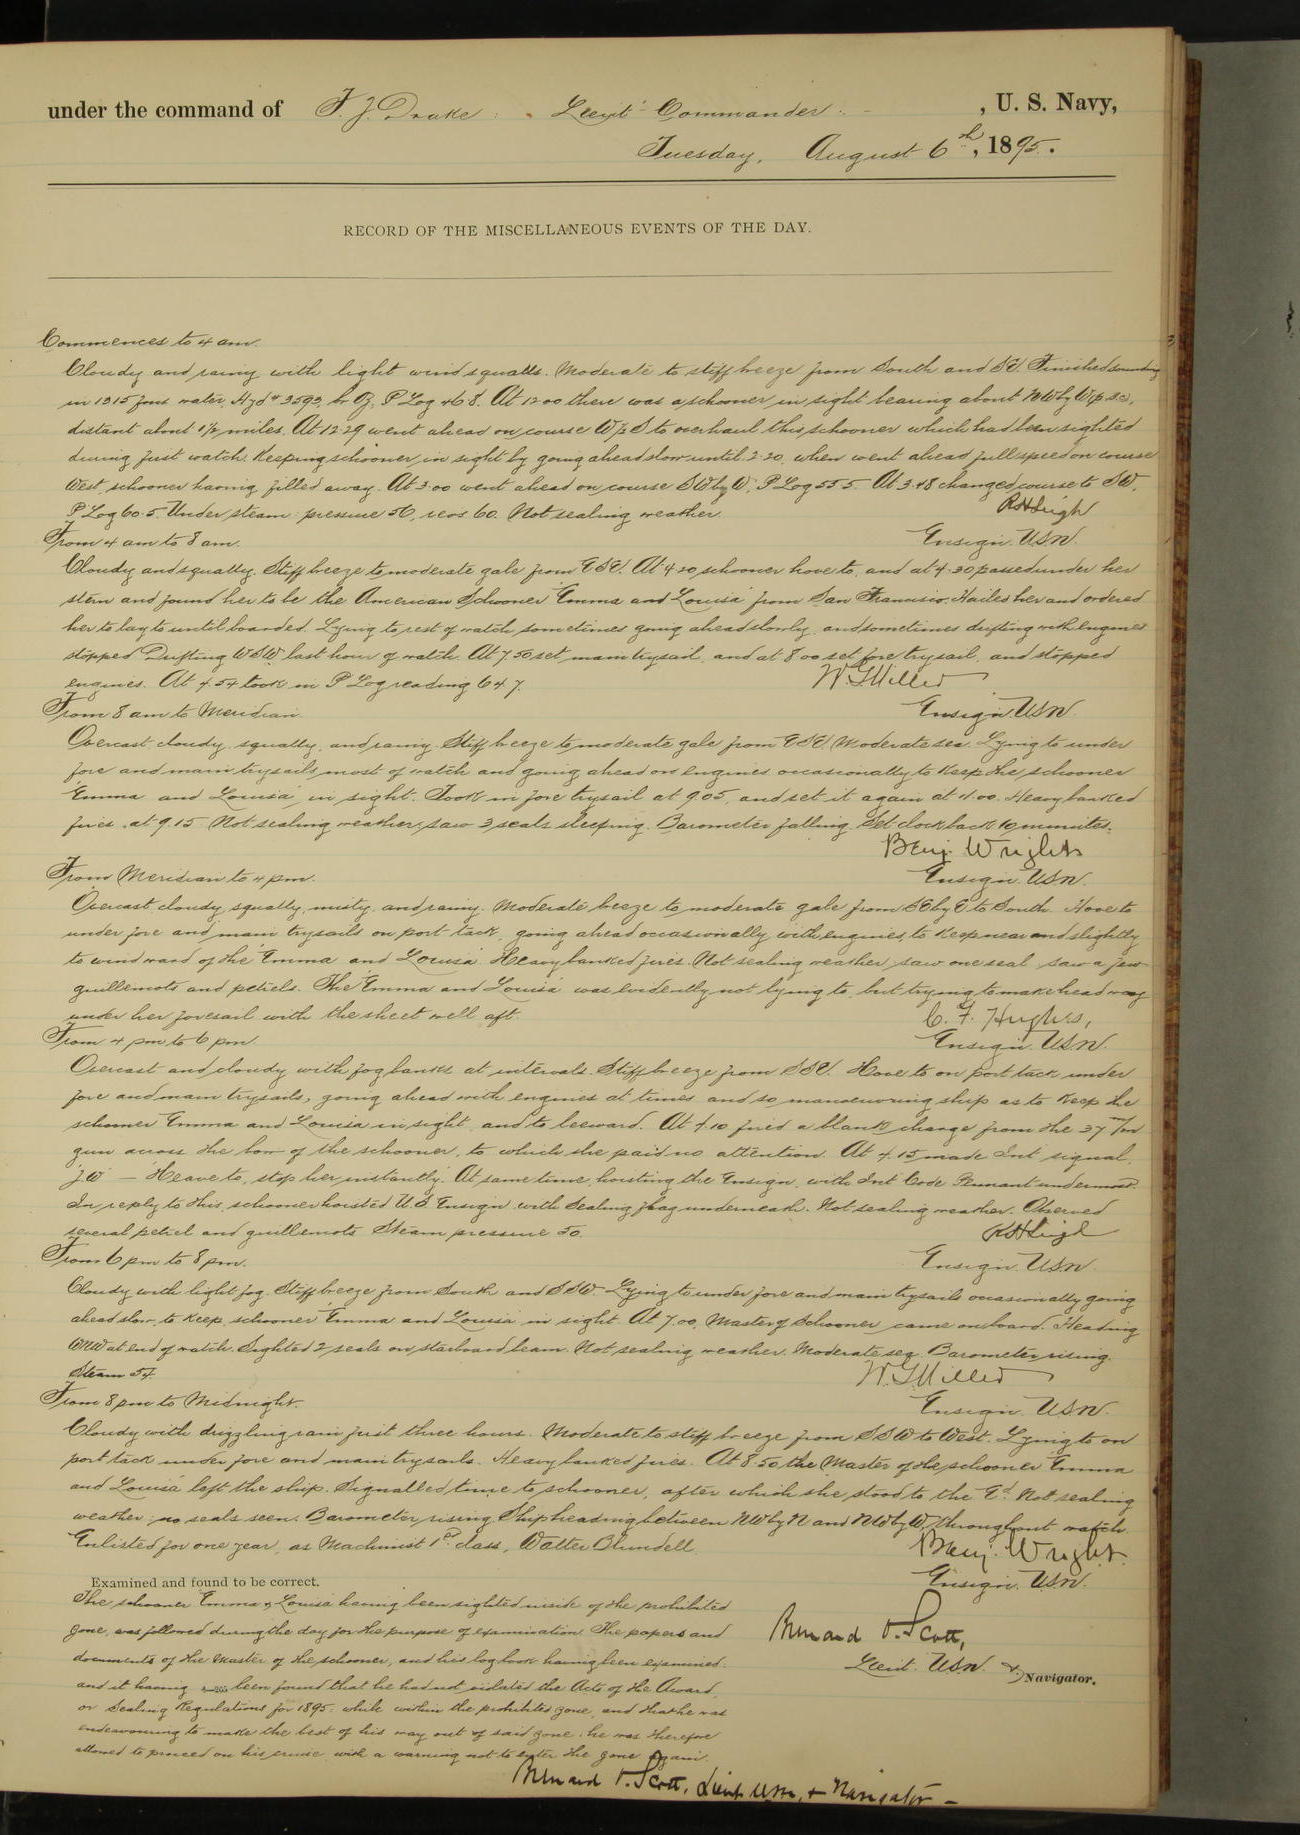 under the command of F. J. Drake, Lieut. Commander, U. S. Navy,
Tuesday, August 6th, 1895.
RECORD OF THE MISCELLANEOUS EVENTS OF THE DAY.
Commences to 4 am.
Cloudy and rainy with light wind squalls. Moderate to stiff breeze from South and SE. Finished sounding
in 1915 fms water, Hyd # 3593, P Log 46.8. At 12 00 there was a schooner in sight bearing about NW by W
distant about 1½ miles. At 12 29 went ahead on course W/S to overhaul this schooner which had been sighted
during first watch. Keeping schooner in sight by going ahead slow until 2 20, when went ahead full speed on course
West, schooner having filled away. At 3 00 went ahead on course SW by W, P Log 55 5. At 3 48 changed course to SW.
P Log 60.5. Under steam pressure 50, revs 60. Not sealing weather.
R H Leigh
Ensign USN.
From 4 am to 8 am.
Cloudy and squally. Stiff breeze to moderate gale from ESE. At 4 20 schooner hove to, and at 4.30 passed under her
stern and found her to be the American Schooner "Emma and Louisa" from San Francisco. Hailed her and ordered
her to lay to until boarded. Lying to rest of watch sometimes going ahead slowly, and sometimes drifting with engines
stopped. Drifting WSW last hour of watch. At 7 50 set main trysail, and at 8 00 set fore trysail, and stopped
engines. At 4 54 took in P Log reading 64 7.
W. G. Miller
Ensign USN.
From 8 am to Meridian.
Overcast, cloudy, squally, and rainy. Stiff breeze to moderate gale from ESE. Moderate sea. Lying to under
fore and main trysails most of watch and going ahead on engines occasionally to keep the schooner
"Emma and Louisa" in sight. Took in fore trysail at 9 05, and set it again at 11.00. Heavy banked
fires at 9.15. Not sealing weather; saw 3 seals sleeping. Barometer falling. Set clock back 10 minutes.
Benj. Wright
Ensign USN.
From Meridian to 4 pm.
Overcast cloudy, squally, misty, and rainy. Moderate breeze to moderate gale from SE by E to South. Hove to
under fore and main trysails on port tack, going ahead occasionally with engines, to keep near and slightly
to windward of the "Emma and Louisa". Heavy banked fires. Not sealing weather, saw one seal, saw a few
guillemots and petrels. The "Emma and Louisa" was evidently not lying to, but trying to make headway
under her foresail with the sheet well aft.
C. F. Hughes,
Ensign USN.
From 4 pm to 6 pm.
Overcast and cloudy with fog banks at intervals. Stiff breeze from SSE. Hove to on port tack under
fore and main trysails, going ahead with engines at times and so manoeuvring ship as to keep the
schooner Emma and Louisa in sight, and to leeward. At 4.10 fired a blank charge from the 37 m/m
gun across the bow of the schooner, to which she paid no attention. At 4.15 made Int signal,
J W — Heave to, stop her instantly. At same time, hoisting the Ensign, with Int Code Pennant undermost.
In reply to this, schooner hoisted U.S. Ensign with Sealing flag underneath. Not sealing weather. Observed
several petrel and guillemots. Steam pressure 50.
R H Leigh
Ensign USN.
From 6 pm to 8 pm.
Cloudy with light fog. Stiff breeze from South and SSW. Lying to under fore and main trysails occasionally going
ahead slow to keep schooner "Emma and Louisa" in sight. At 7.00, Master of Schooner came on board. Heading
WNW at end of watch. Sighted 2 seals on starboard beam. Not sealing weather. Moderate sea. Barometer rising.
Steam 54.
W. G. Miller
Ensign USN.
From 8 pm to Midnight.
Cloudy with drizzling rain first three hours. Moderate to stiff breeze from SSW to West. Lying to on
port tack under fore and main trysails. Heavy banked fires. At 8.50 the Master of the schooner "Emma
and Louisa" left the ship. Signalled time to schooner, after which she stood to the Ed. Not sealing
weather; no seals seen. Barometer rising. Ship heading between NW by N and NW by W throughout watch.
Enlisted for one year, as Machinist 1st class, Walter Blundell.
Benj. Wright.
Ensign USN.
Examined and found to be correct.
The schooner Emma & Louisa having been sighted inside of the prohibited
zone, was followed during the day for the purpose of examination. The papers and
documents of the Master of the schooner, and his log book having been examined.
and it having been found that he had not violated the Acts of the Award,
or Sealing Regulations for 1895, while within the prohibited zone, and that he was
endeavouring to make the best of his way out of said zone: he was therefore
allowed to proceed on his cruise with a warning not to enter the zone again.
Bernard O. Scott,
Lieut. USN. & Navigator.
Bernard O. Scott, Lieut USN, & Navigator —